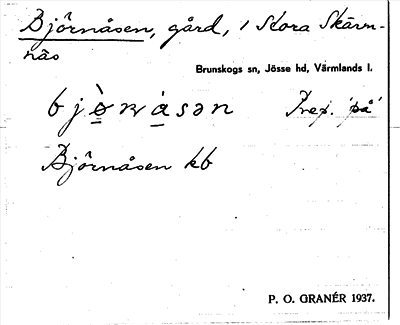 Björnåsen, gård, i Stora Skärm-
näs
Brunskogs sn, Jösse hd, Värmlands l.
Prep. 'på'
Björnåsen kb
P. O. GRANÉR 1937.